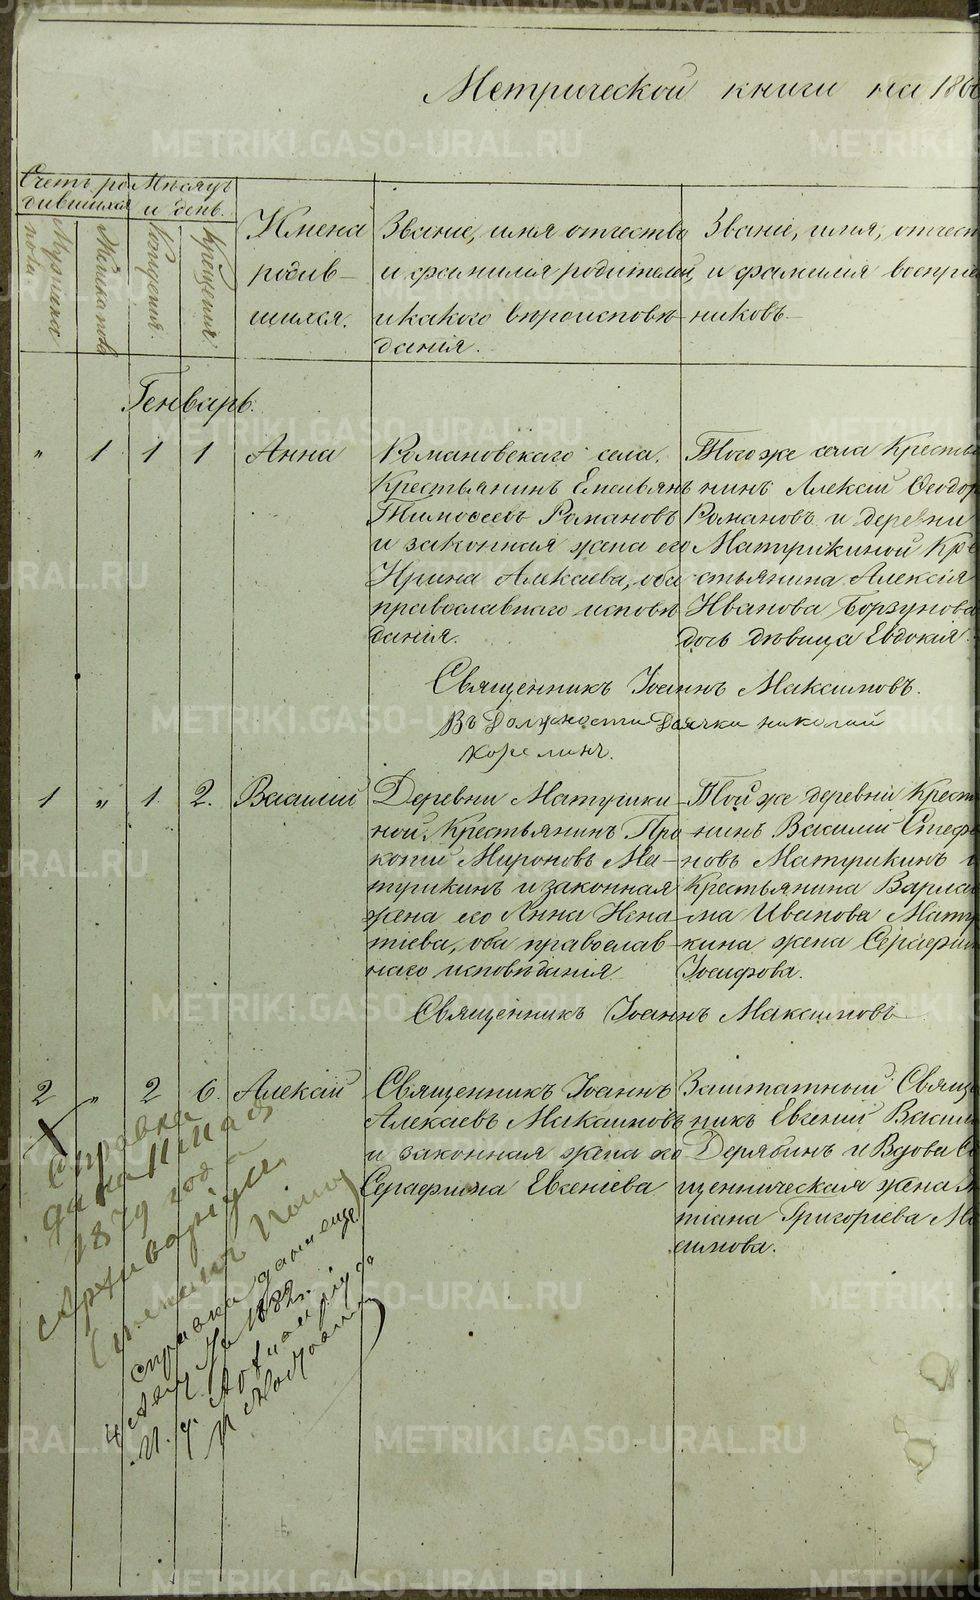 METRIKI.GASO-URAL.RU
Метрической книги на 186
Счетъ ро
дившихся
Мѣсяцъ
и день.
Мужеска
пола
Женскаго
Рожденія.
Крещенія
Имена
родив-
шихся.
Званіе, имя отчество
и фамилія родителей,
и какого вѣроисповѣ
данія.
Званіе, имя, отчест
и фамилія воспріе
никовъ
Генварь.
" 1 1 1 Анна
Романовскаго села.
Крестьянинъ Емельянъ
Тимоѳеевъ Романовъ
и законная жена его
Ирина Алексѣева, оба
православнаго исповѣ
данія.
Того же села Крестья
нинъ Алексѣй Ѳеодор
Романовъ и деревни
Матушкиной Кре
стьянина Алексія
Иванова Борзунова
дочь дѣвица Евдокія.
Священникъ Іоаннъ Максимовъ.
Въ Должности Дьячка николай
1 " 1 2. Василій
Деревни Матушки
ной, Крестьянинъ Про
копій Мироновъ Ма-
тушкинъ и законная
жена его Анна Игна
тіева, оба православ-
наго исповѣданія
Той же деревни Крестья
нинъ Василій Стефа
новъ Матушкинъ и
Крестьянина Варлаа
ма Иванова Мату
кина жена Серафим
Іосифова.
Священникъ Іоаннъ Максимовъ
2 " 2 6. Алексѣй
Священникъ Іоаннъ
Алексѣевъ Максимовъ
и законная жена его
Серафима Евгеніева
Заштатный Свяще
никъ Евгеній Васил
Дерябинъ и Вдова С
щенническая жена
тіана Григорьева Ма
симова.
Справка
дана
1879 года
Архиваріусъ
справка дана еще
1882 г.